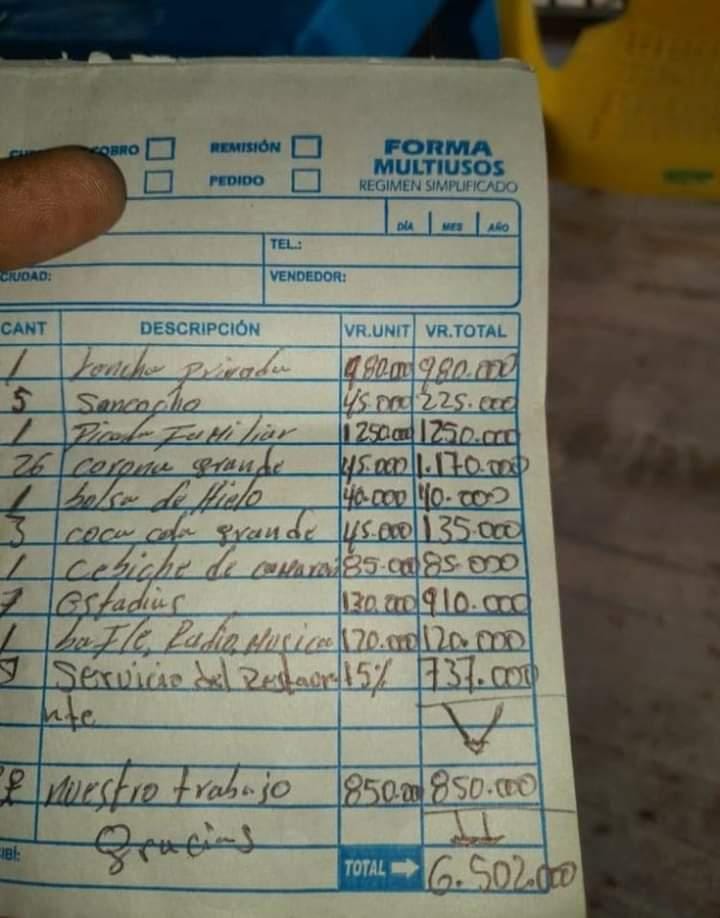 COBRO REMISIÓN FORMA
MULTIUSOS
PEDIDO REGIMEN SIMPLIFICADO
DÍA MES AÑO
TEL.:
CIUDAD: VENDEDOR:
CANT DESCRIPCIÓN VR.UNIT VR.TOTAL
1 Privada 980.000 980.000
5 Sancocho 45.000 225.000
1 Picada Familiar 1250.000 1250.000
26 corona grande 45.000 1.170.000
1 bolsa de Hielo 40.000 40.000
3 coca cola grande 45.000 135.000
1 Cebiche de 85.000 85.000
7 estadias 130.000 910.000
1 bafle, Radio, Musica 120.000 120.000
Servicio del Restaora 15% 737.000
nte
nuestro trabajo 850.000 850.000
Gracias
TOTAL 6.502.000